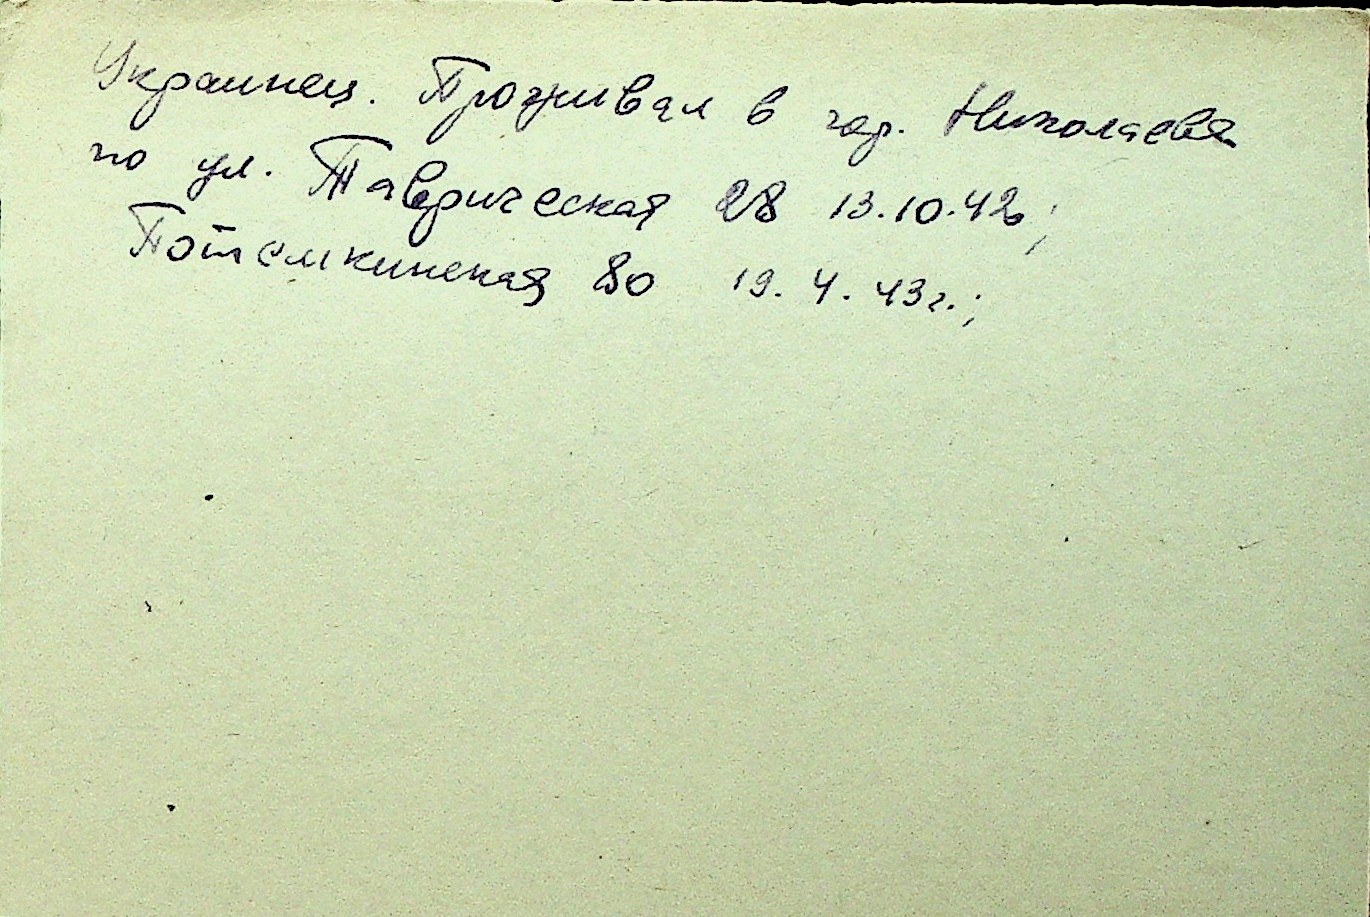 Украинец. Проживал в гор. Николаеве
по ул. Таврическая 28 13.10.42г;
Потемкинская 80 19.4.43г.;